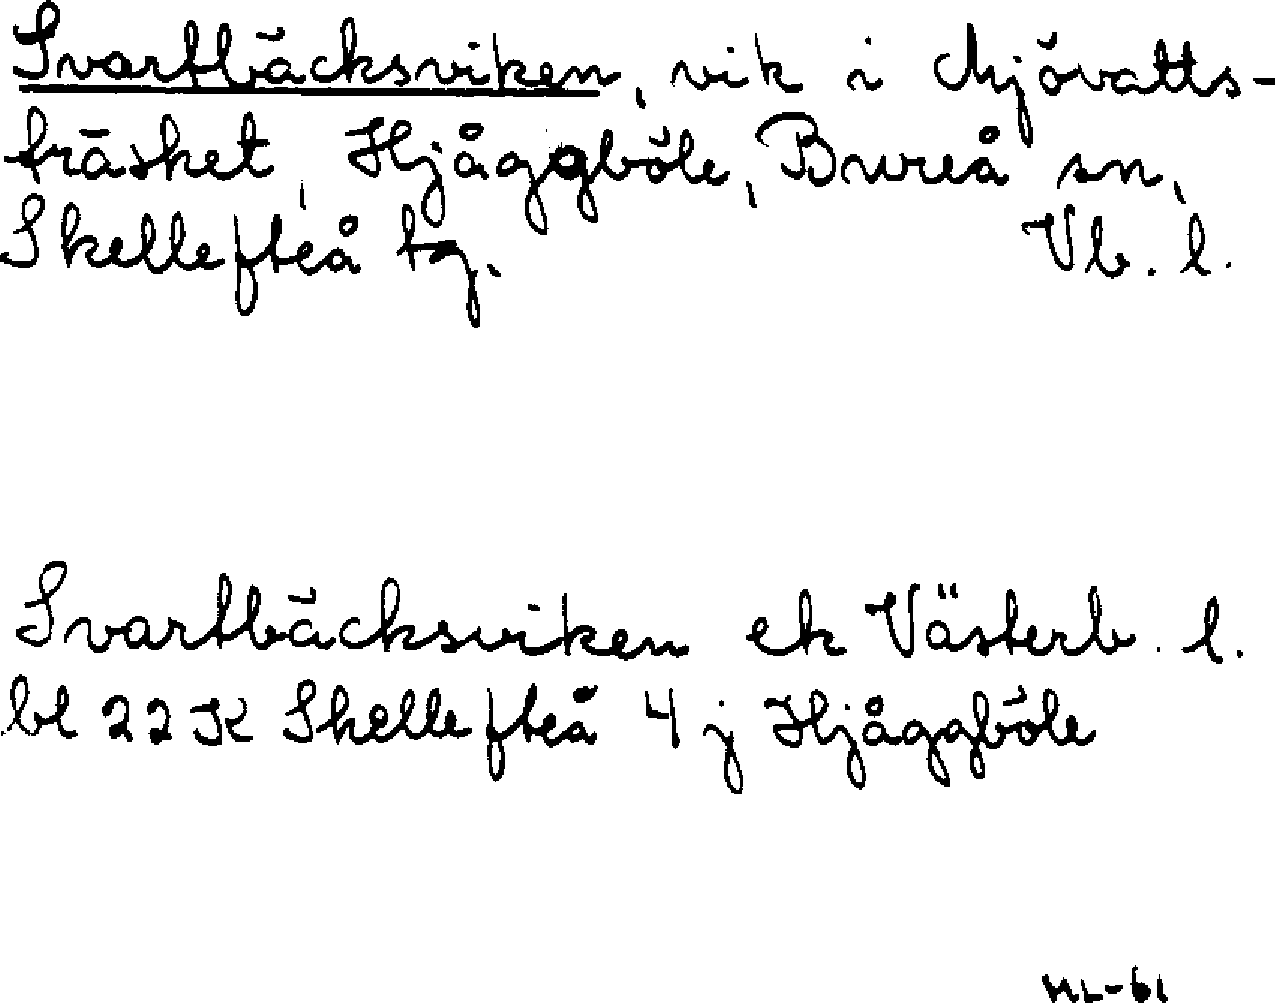 Svartbäcksviken, vik i Mjövatts-
träsket, Hjåggböle, Bureå sn,
Skellefteå tg. Vb. l.
Svartbäcksviken ek Västerb. l.
bl 22 K Skellefteå 4 j Hjåggböle
ML-61